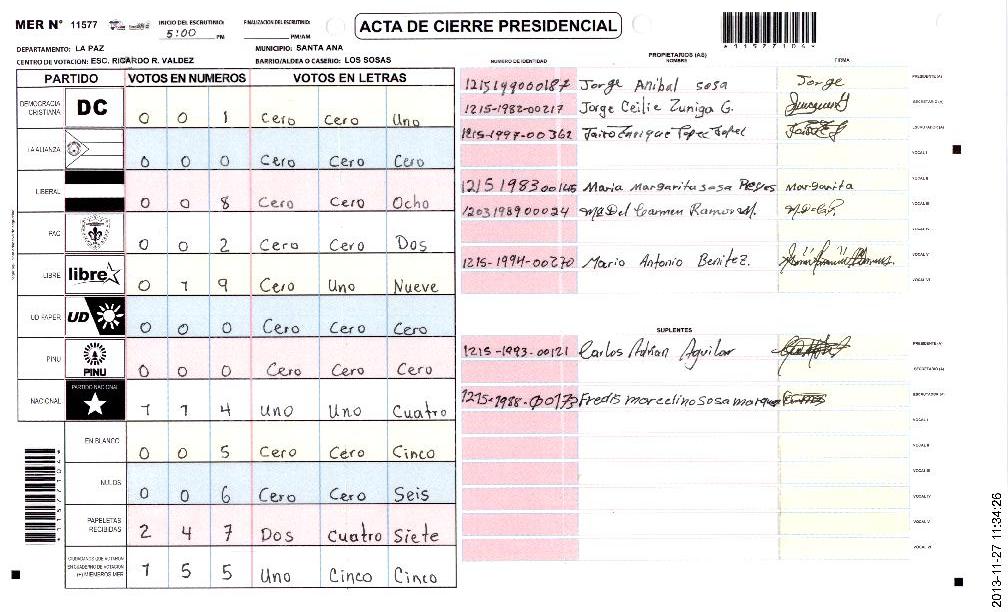 MER N° 11577
INICIO DEL ESCRUTINIO: 5:00 PM
FINALIZACION DEL ESCRUTINIO: PM/AM
ACTA DE CIERRE PRESIDENCIAL
DEPARTAMENTO: LA PAZ
MUNICIPIO: SANTA ANA
CENTRO DE VOTACION: ESC. RICARDO R. VALDEZ
BARRIO/ALDEA O CASERIO: LOS SOSAS
PARTIDO VOTOS EN NUMEROS VOTOS EN LETRAS
DEMOCRACIA CRISTIANA DC 0 0 1 Cero Cero Uno
LA ALIANZA 0 0 0 Cero Cero Cero
LIBERAL 0 0 8 Cero Cero Ocho
PAC 0 0 2 Cero Cero Dos
LIBRE libre 0 1 9 Cero Uno Nueve
UD FAPER UD 0 0 0 Cero Cero Cero
PINU PINU 0 0 0 Cero Cero Cero
NACIONAL PARTIDO NACIONAL 1 1 4 Uno Uno Cuatro
EN BLANCO 0 0 5 Cero Cero Cinco
NULOS 0 0 6 Cero Cero Seis
PAPELETAS RECIBIDAS 2 4 7 Dos Cuatro Siete
CIUDADANOS QUE VOTARON EN CUADERNO DE VOTACION (+) MIEMBROS MER 1 5 5 Uno Cinco Cinco
PROPIETARIOS (AS)
NUMERO DE IDENTIDAD NOMBRE FIRMA
1215199000187 Jorge Anibal sosa Jorge PRESIDENTE (A)
1215-1982-00217 Jorge Ceilie Zuniga G. SECRETARIO (A)
1215-1997-00362 Jairo Enrique Lopez Lopez ESCRUTADOR (A)
VOCAL I
1215 1983 00145 Maria Margarita sosa Reyes Margarita VOCAL II
1203198900024 Ma Del Carmen Ramos M. VOCAL III
VOCAL IV
1215-1994-00270 Mario Antonio Benitez. VOCAL V
VOCAL VI
SUPLENTES
1215-1993-00121 Carlos Adrian Aguilar PRESIDENTE (A)
SECRETARIO (A)
1215-1988-00173 Fredis marcelino sosa marquez ESCRUTADOR (A)
VOCAL I
VOCAL II
VOCAL III
VOCAL IV
VOCAL V
VOCAL VI
2013-11-27 11:34:26